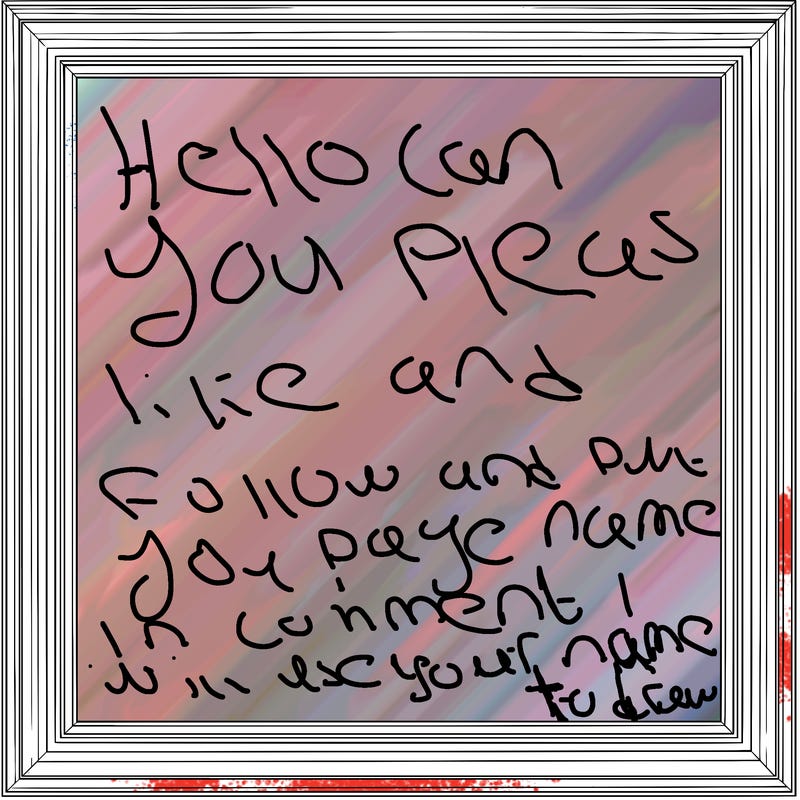 Hello can
you pleas
like and
Follow and put
your page name
in comment I
will use your name
to drew